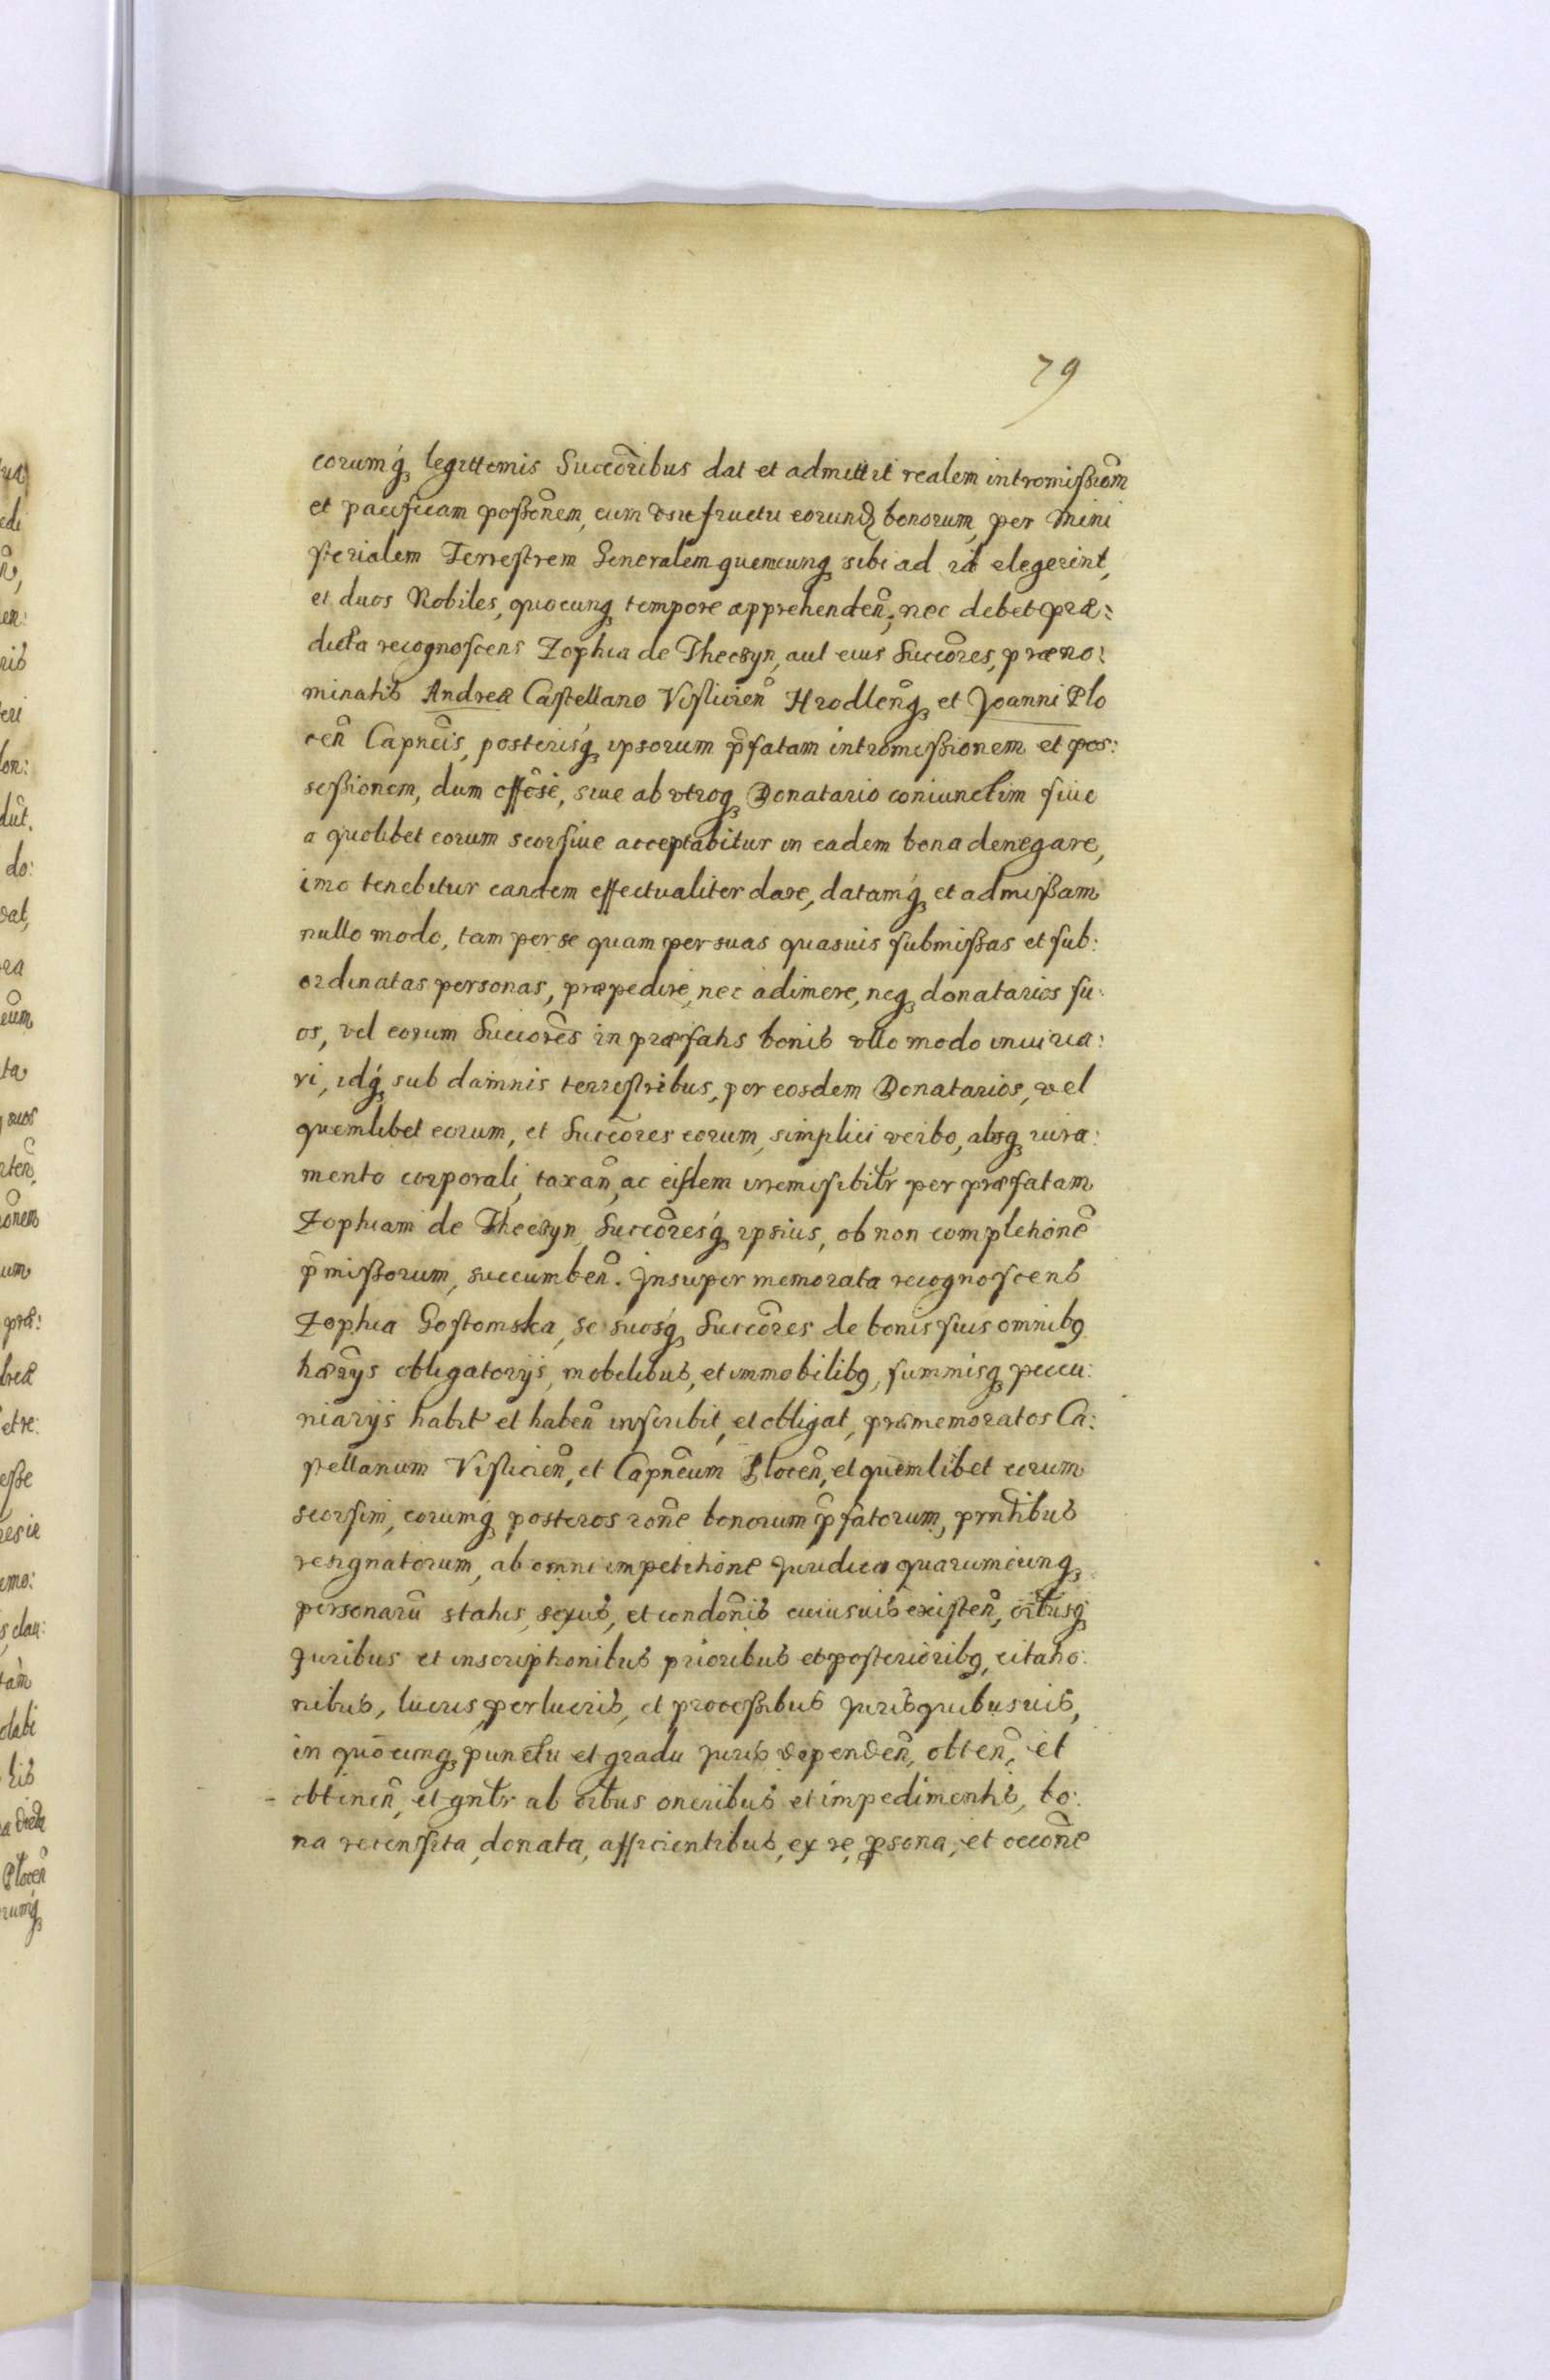 79
eorumq́ꝫ legittimis Succõribus dat et admittit realem intromissiõm
et pacificam possõnem, cum vsufructu eorundꝫ bonorum, per Mini
sterialem Terrestrem Generalem quemcunqꝫ sibi ad id elegerint,
et duos Nobiles, quocunqꝫ tempore apprehendeñ; nec debet præ:
dicta recognoscens Zophia de Theczyn, aut eius Succõres, præno:
minatis Andreæ Castellano Visliciẽn Hrodleñqꝫ et Joanni Plo
ceñ Capneĩs, posterisq́ꝫ ipsorum p̃fatam intromissionem et pos:
sessionem, dum offõse, siue ab vtroqꝫ Donatario coniunctim siue
a quolibet eorum seorsiue acceptabitur in eadem bona denegare,
imo tenebitur eandem effectualiter dare, datamq́ꝫ et admissam
nullo modo, tam per se quam per suas quasuis submissas et sub:
ordinatas personas, præpedire, nec adimere, neqꝫ donatarios su:
os, vel eorum Succores in præfatis bonis vllo modo iniuria:
ri, idq́ꝫ sub damnis terrestribus, per eosdem Donatarios, vel
quemlibet eorum, et Succõres eorum, simplici verbo, absqꝫ iura:
mento corporali, taxañ, ac eisdem irremisibiltr per præfatam
Zophiam de Theczyn, Succõresq́ꝫ ipsius, ob non completionẽ
p̃missorum, succumbeñ. Insuper memorata recognoscens
Zophia Gostomska, se suosq́ꝫ Succõres de bonis suis omnibꝰ
hærijs obligatorijs, mobilibus, et immobilibꝰ, summisqꝫ peccu:
niarijs habit et habeñ inscribit, et obligat, præmemoratos Ca:
stellanum Visliciẽn, et Capnẽum Ploceñ, et quemlibet eorum
seorsim, eorumq́ꝫ posteros rõne bonorum p̃fatorum, prntibus
resignatorum, ab omni impetitione Juridica quarumcunqꝫ
personarũ status, sexus, et condõnis cuiusuis existeñ, oĩbusq́ꝫ
Juribus et inscriptionibus prioribus et posterioribꝰ, citatio:
nibus, lucris, perlucris, et processibus Juris quibusuis,
in quocunqꝫ punctu et gradu Juris dependeñ, obteñ, et
obtineñ, et gnltr ab oĩbus oneribus et impedimentis, bo:
na recensita, donata, afficientibus, ex re, psona, et occõne